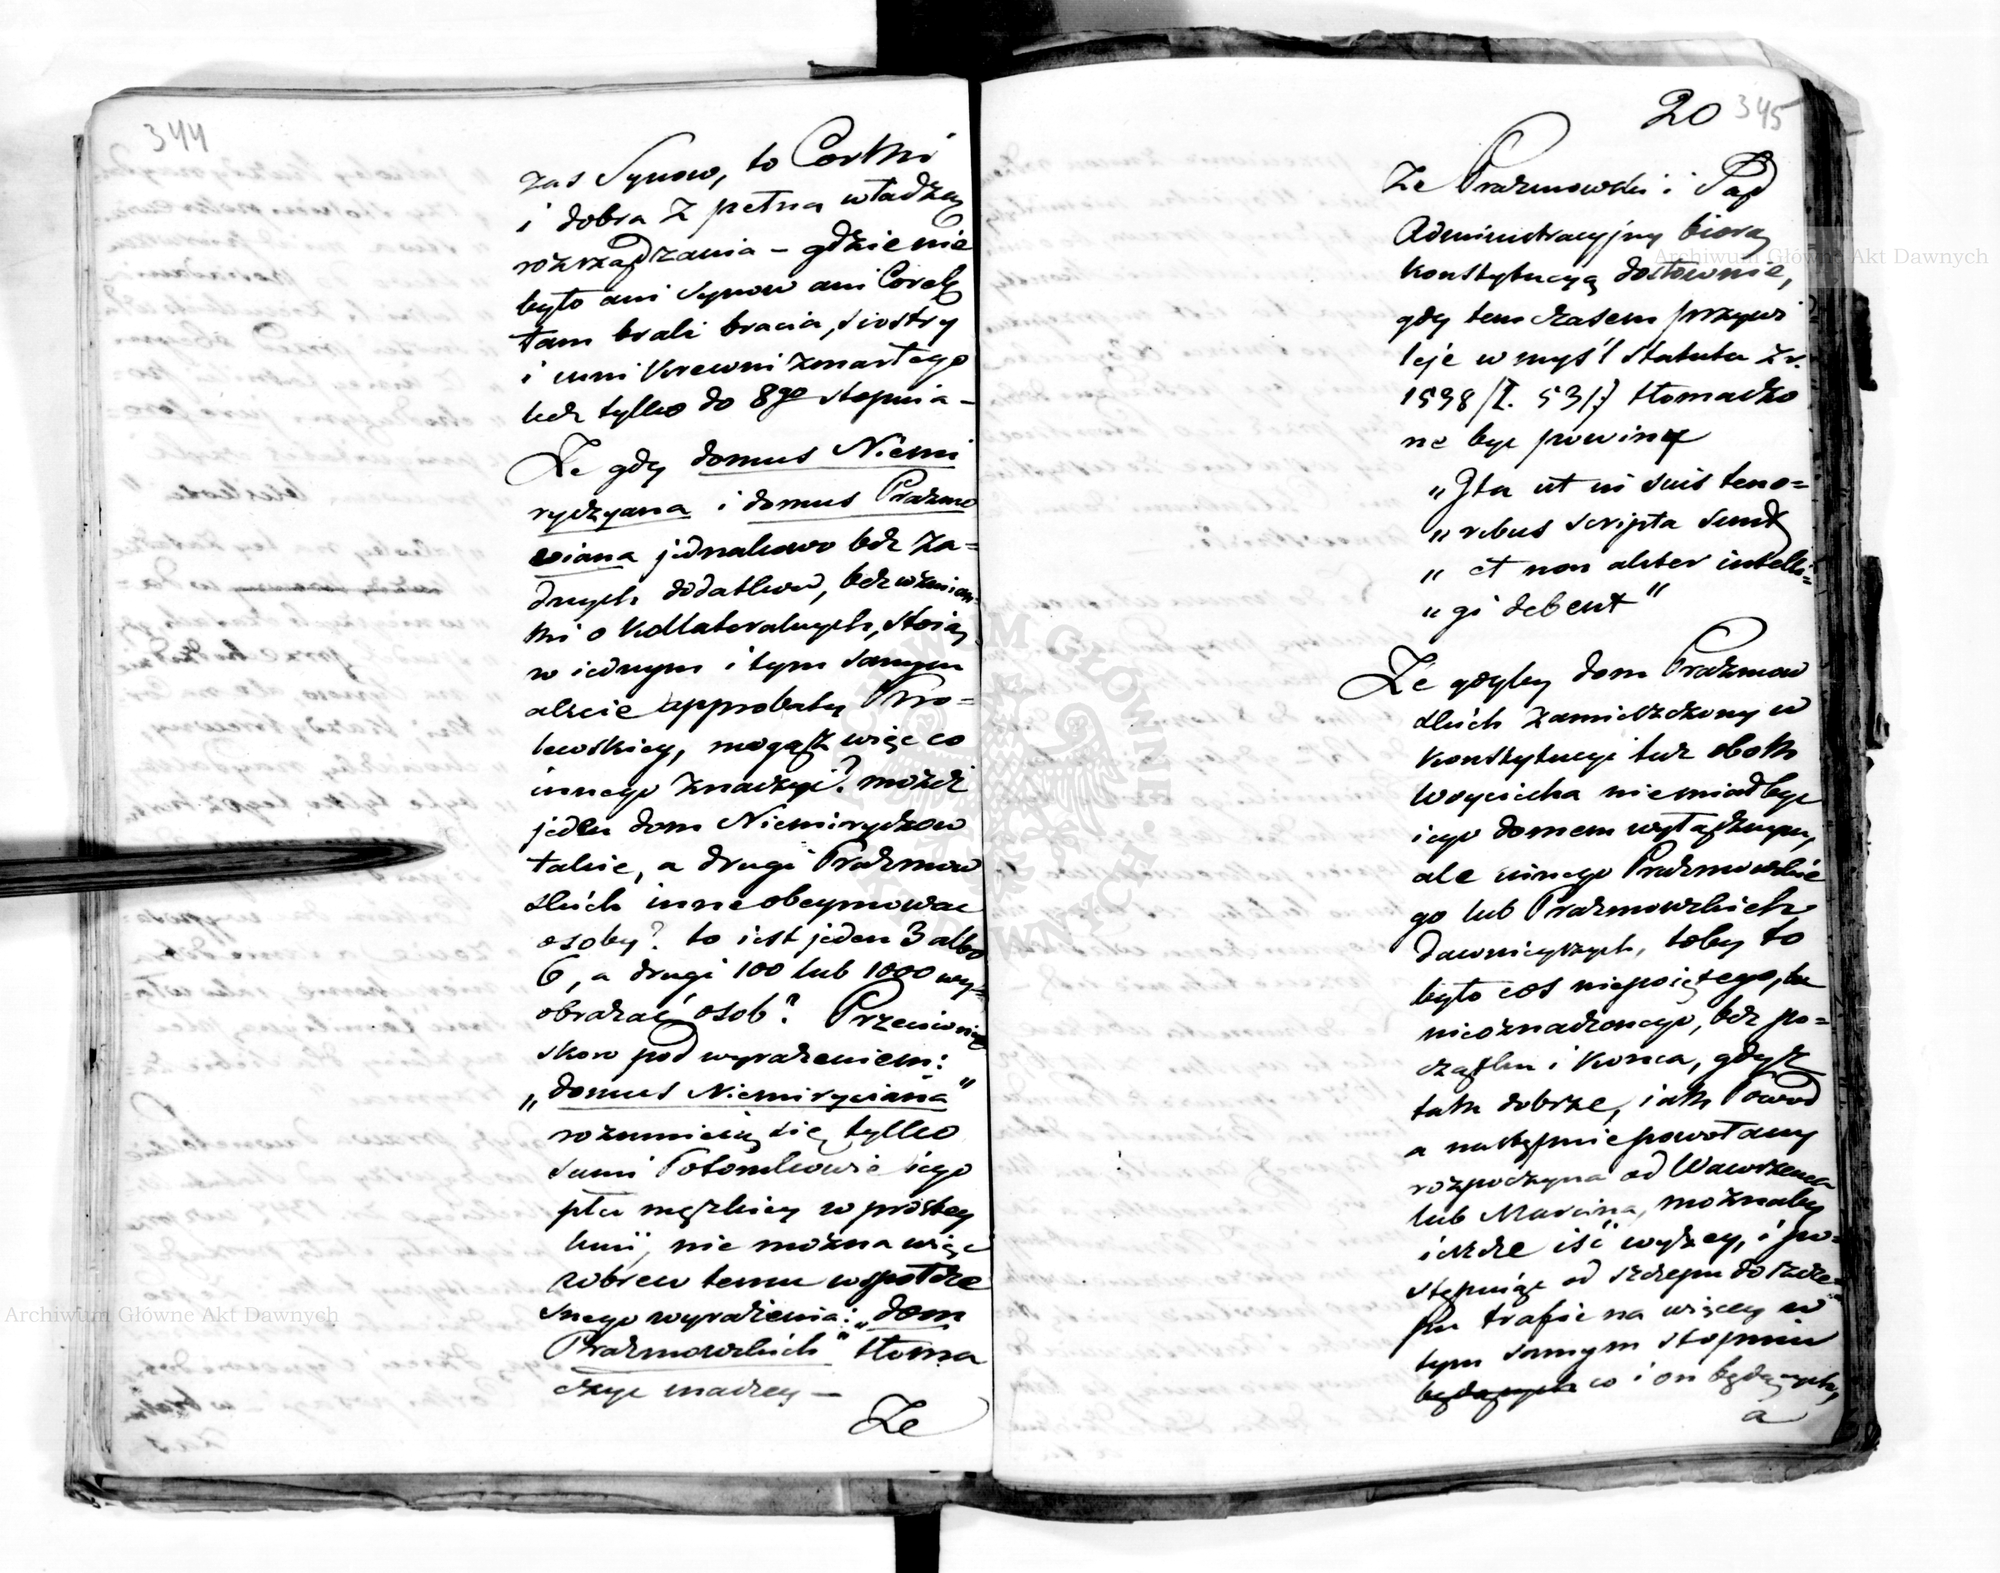 344
zas Synow, to Corki
i dobra z pełną władzą
rozrządzania – gdzie nie
było ani Synow ani Corek
tam brali bracia, siostry
i inni Krewni zmarłego
lecz tylko do 8go stopnia –
Że gdy domus Niemi
ryczyana i domus Prażmo
viana jednakowo bez ża=
dnych dodatkow, bez wzmian=
ki o Kollateralnych, stoią
w iednym i tym samym
akcie approbaty Kro=
lewskiey, mogąż więc co
innego znaczyć? możeż
jeden dom Niemiryczow
takie, a drugi Prażmow
skich inne obeymować
osoby? to iest jeden 3 albo
6, a drugi 100 lub 1000 wy=
obrażać osob? Przeciwnie
skoro pod wyrażeniem:
„domus Niemiryciana"
rozumieią się tylko
sami Potomkowie iego
płci męzkiey w prostey
linii, nie można więc
wbrew temu wspołcze
snego wyrażenia: „dom
Prażmowskich" tłoma
czyć inaczey –
Że
20 345
Że Prażmowski i Sąd
Administracyjny biorą
Konstytucyą dosłownie,
gdy tem czasem przywi
leje w myśl Statutu z r.
1538 /I. 531/ tłomaczo
ne być powinny
„Ita ut in suis teno=
„ribus scripta sunt
„et non aliter intelli=
„gi debent"
Że gdyby dom Prażmow
skich zamieszczony w
Konstytucyi tuż obok
Woyciecha nie miał być
iego domem wyłącznym,
ale innego Prażmowskie
go lub Prażmowskich
dawnieyszych, toby to
było coś niepoiętego, lu
nieoznaczonego, bez po=
czątku i Końca, gdyż
tak dobrze, iak Powod
a następnie powołany
rozpoczyna od Wawrzeńca
lub Marcina, możnaby
ieszcze iść wyżey, i po=
stępuiąc od szczepu do szcze=
pu trafić na więcey w
tym samym stopniu
będących co i on będących,
a